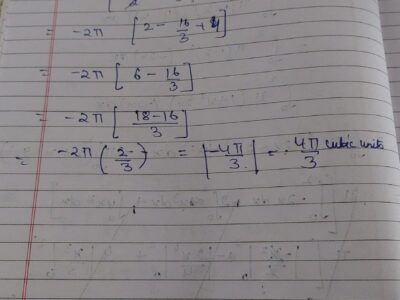 = -2π [2 - 16/3 + 4]
= -2π [6 - 16/3]
= -2π [18-16/3]
= -2π (2/3) = |-4π/3| = 4π/3 cubic units